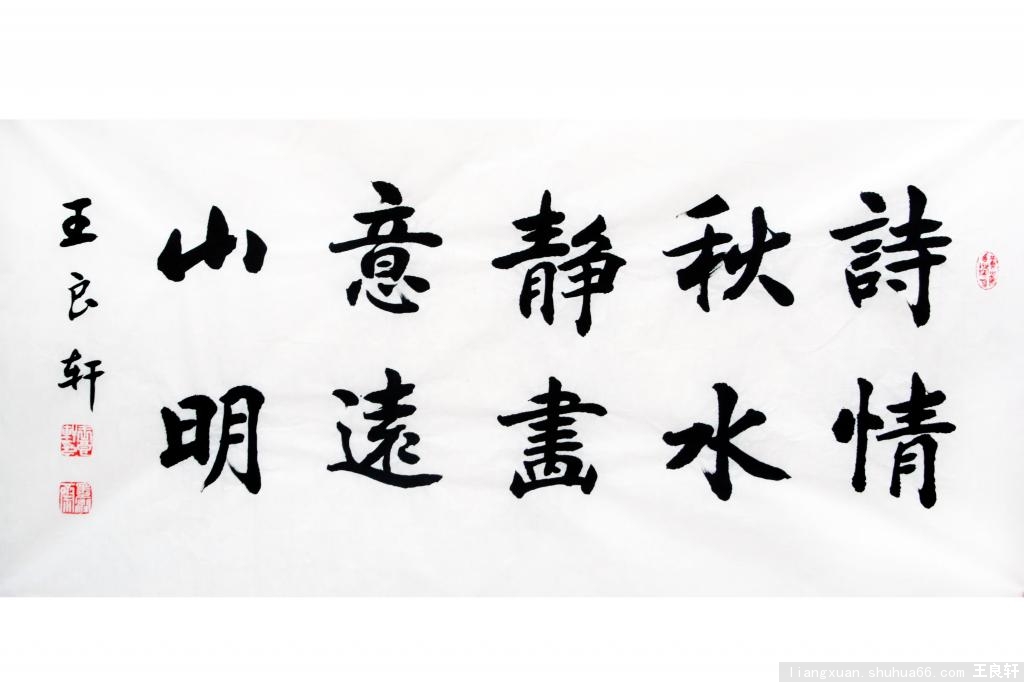 詩情
秋水
靜畫
意遠
山明
王良轩
liangxuan.shuhua66.com 王良轩